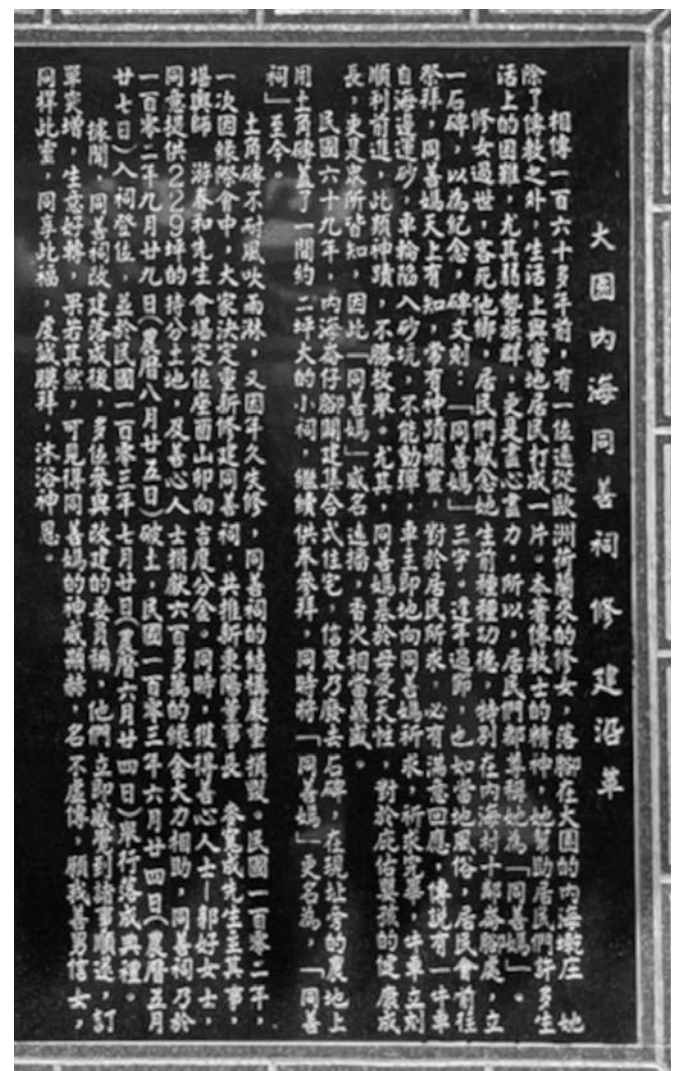 大園內海同善祠修建沿革
相傳一百六十多年前，有一位遠從歐洲荷蘭來的修女，落腳在大園的內海墘庄，她
除了傳教之外，生活上與當地居民打成一片。本著傳教士的精神，她幫助居民們許多生
活上的困難，尤其弱勢族群，更是盡心盡力，所以，居民們都尊稱她為「同善媽」。
修女過世，客死他鄉，居民們感念她生前種種功德，特別在內海村十鄰崙腳處，立
一石碑，以為紀念，碑文刻：「同善媽」三字。逢年過節，也如當地風俗，居民會前往
祭拜，同善媽天上有知，常有神蹟顯靈，對於居民所求，必有滿意回應，傳說有一牛車
自海邊運砂，車輪陷入砂坑，不能動彈，車主即地向同善媽祈求，祈求完畢，牛車立刻
順利前進，此類神蹟，不勝枚舉。尤其，同善媽基於母愛天性，對於庇佑嬰孩的健康成
長，更是眾所皆知，因此「同善媽」威名遠播，香火相當鼎盛。
民國六十九年，內海崙仔腳闢建集合式住宅，信眾乃廢去石碑，在現址旁的農地上
用土角磚蓋了一間約二坪大的小祠，繼續供奉參拜，同時將「同善媽」更名為，「同善
祠」至今。
土角磚不耐風吹雨淋，又因年久失修，同善祠的結構嚴重損毀。民國一百零二年，
一次因緣際會中，大家決定重新修建同善祠，共推新東陽董事長 麥寬成先生主其事，
堪輿師 游春和先生會堪定位座面山卯向吉度分金。同時，獲得善心人士－郭好女士，
同意提供229坪的持分土地，及善心人士捐獻六百多萬的緣金大力相助，同善祠乃於
一百零二年九月廿九日(農曆八月廿五日)破土，民國一百零三年六月廿四日(農曆五月
廿七日)入祠登位，並於民國一百零三年七月廿日(農曆六月廿四日)舉行落成典禮。
據聞，同善祠改建落成後，多位參與改建的委員稱，他們立即感覺到諸事順遂，訂
單突增，生意好轉，果若其然，可見得同善媽的神威顯赫，名不虛傳，願我善男信女，
同祥此靈，同享此福，虔誠膜拜，沐浴神恩。